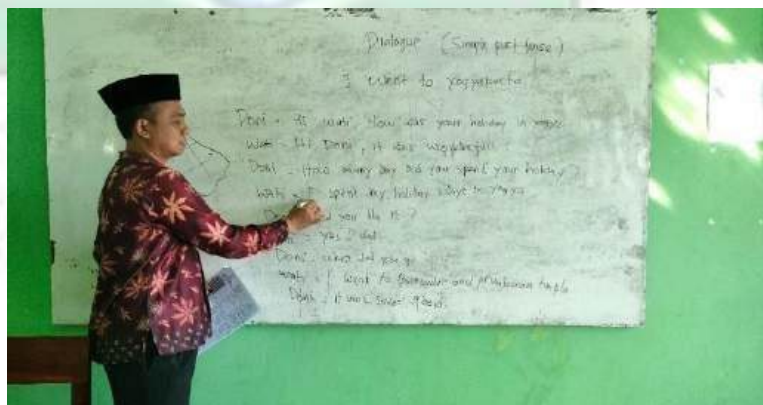 Dialogue (Simple past tense)
I went to Yogyakarta
Doni = Hi Wati, How was your holiday in
Wati = Hi Doni, it was wonderful
Doni = How many day did you spent your holiday?
Wati = I spent my holiday days in Yogya
you like it?
= yes I did.
Doni = where did you go
Wati = I went to and Prambanan temple
Doni = it was